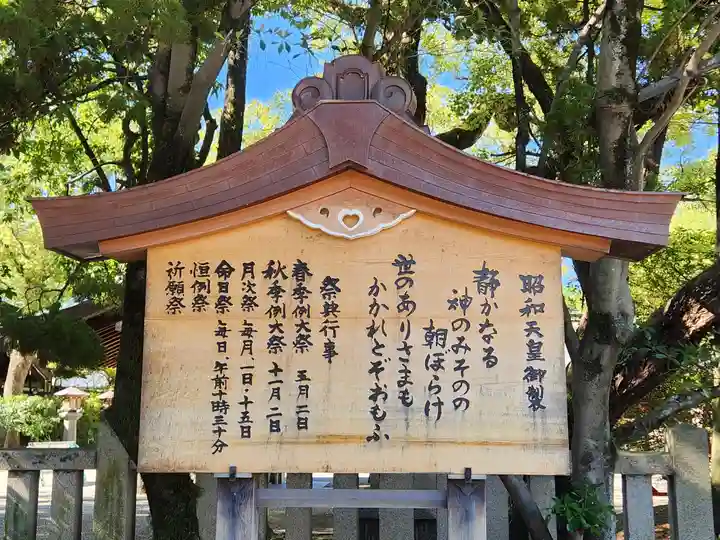 昭和天皇御製
静かなる
神のみそのの
朝ぼらけ
世のありさまも
かかれとぞおもふ
祭典行事
春季例大祭 五月二日
秋季例大祭 十一月二日
月次祭 毎月一日・十五日
命日祭 毎日、午前十時三十分
恒例祭
祈願祭